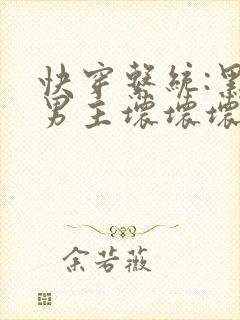 快穿系統:黑
男主壞壞壞
余若薇